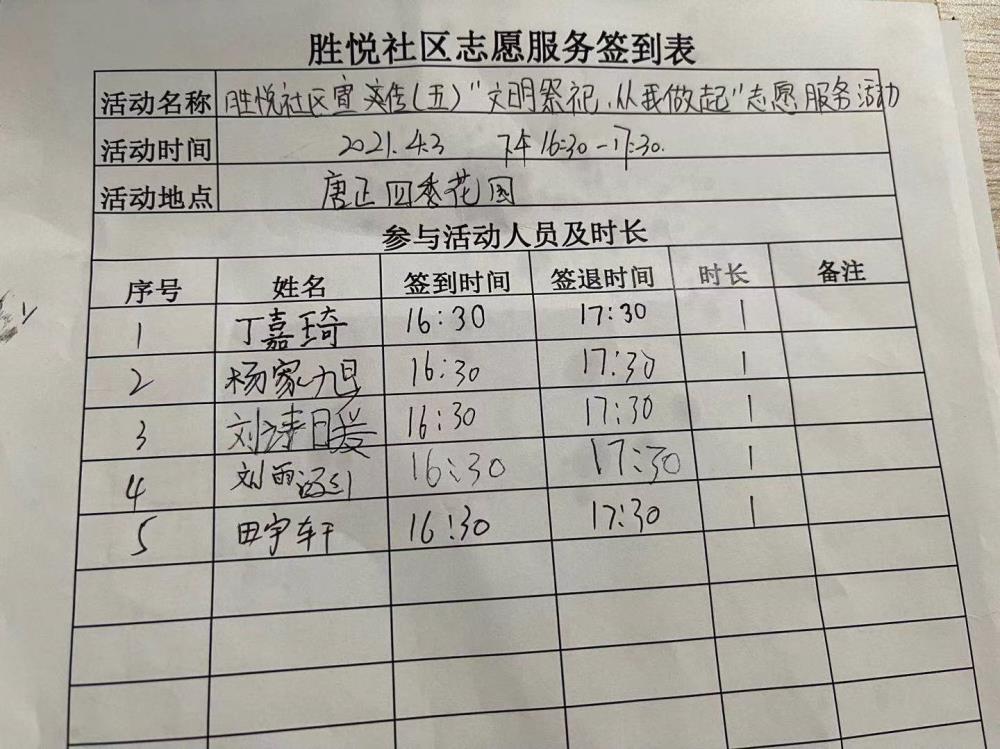 胜悦社区志愿服务签到表
活动名称 胜悦社区宣传(五)"文明祭祀,从我做起"志愿服务活动
活动时间 2021.4.3 下午16:30-17:30.
活动地点 唐正四季花园
参与活动人员及时长
序号 姓名 签到时间 签退时间 时长 备注
1 丁嘉琦 16:30 17:30 1
2 杨家旭 16:30 17:30 1
3 刘 16:30 17:30 1
4 刘雨涵 16:30 17:30 1
5 田宇轩 16:30 17:30 1